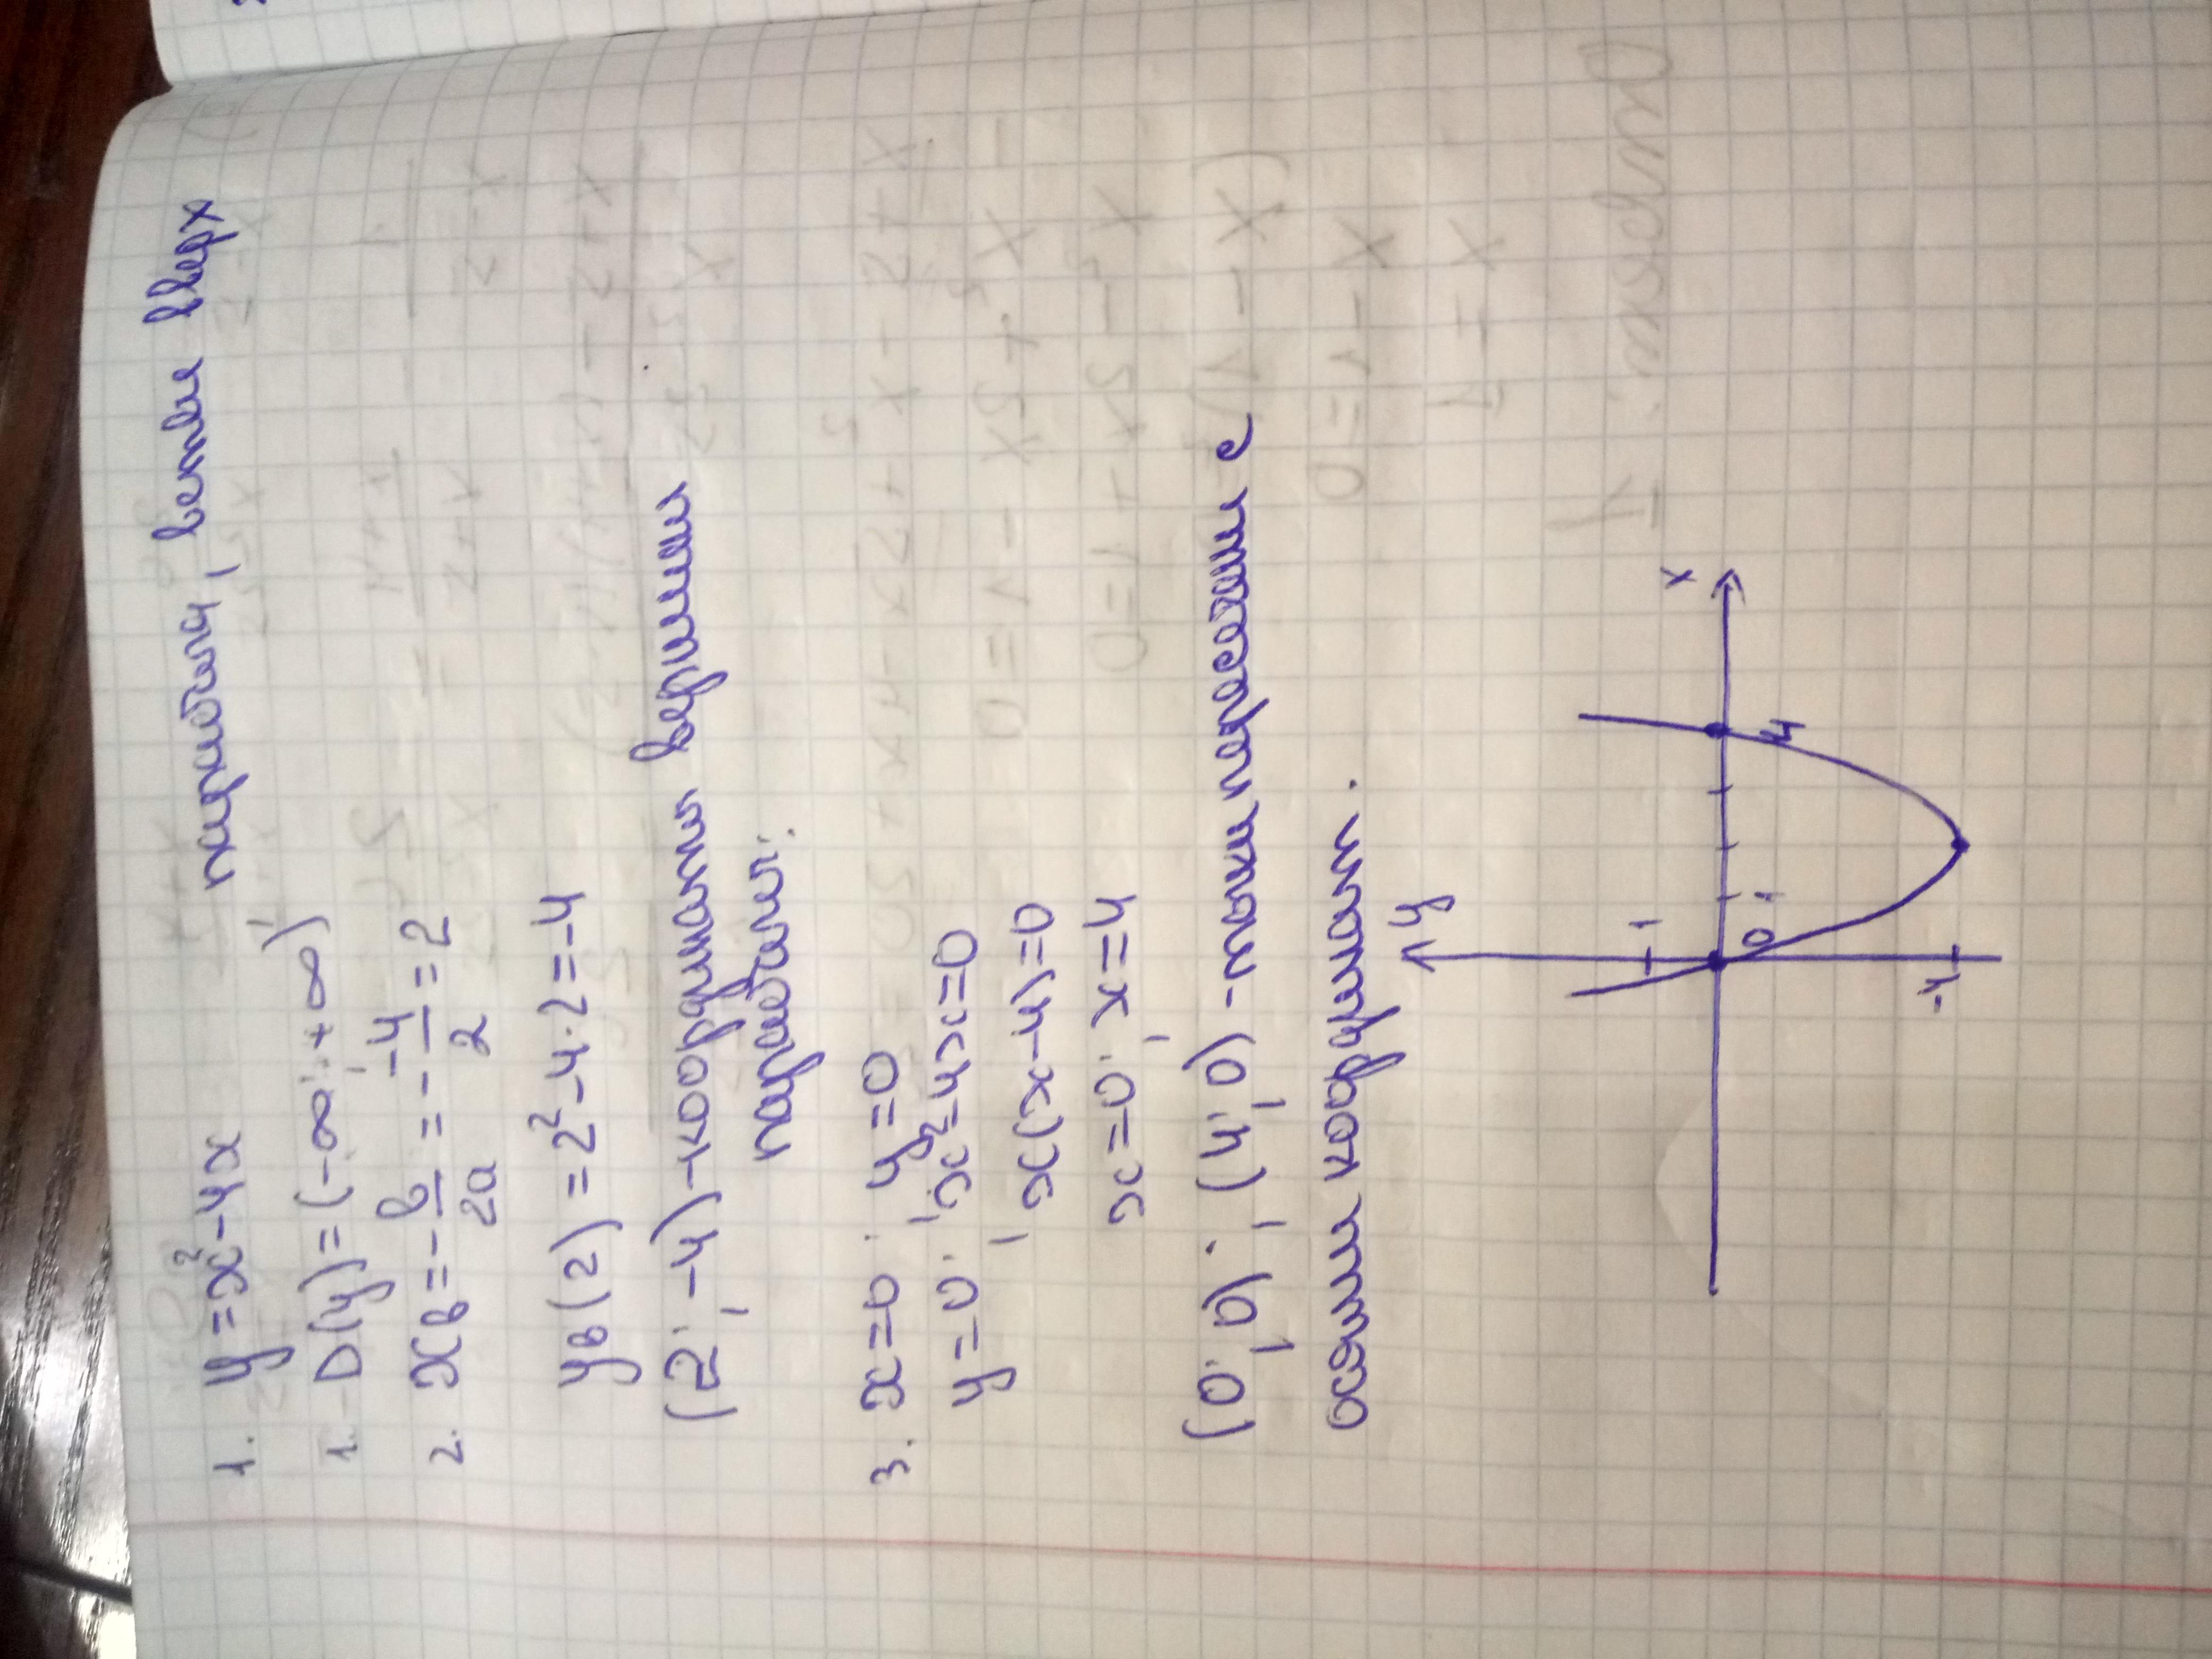 1. y=x²-4x парабола, ветви вверх
1. D(y)=(-∞; +∞)
2. xв=-в/2a=-(-4)/2=2
yв(2)=2²-4·2=-4
(2; -4)-координати вершини
параболи.
3. x=0; y=0
y=0; x²-4x=0
x(x-4)=0
x=0; x=4
(0;0); (4;0)-точки перетину с
осями координат.
y
x
1
0
1
4
-4